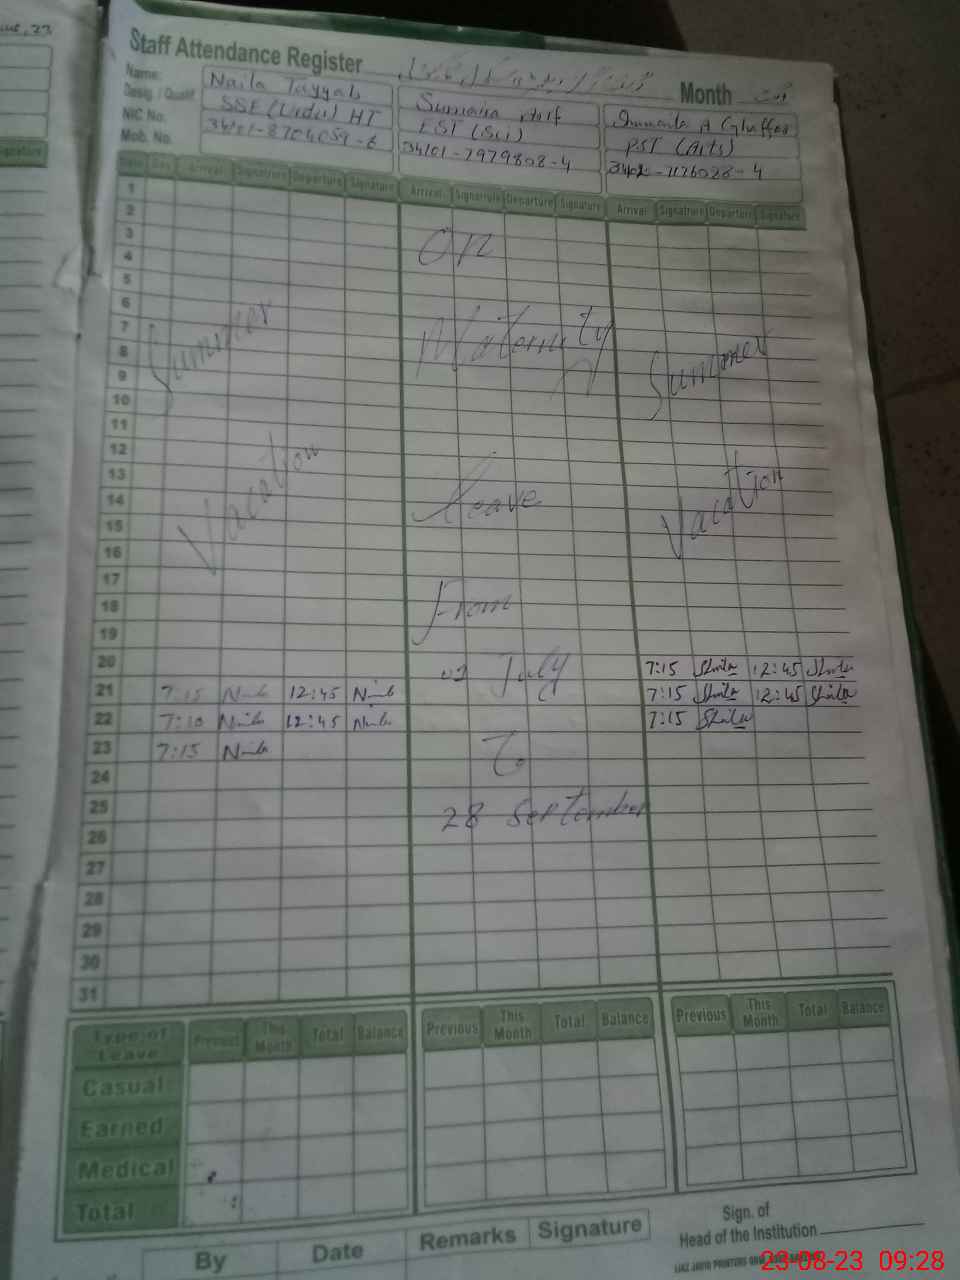 Staff Attendance Register Month
Name: Naila Tayyab Sumaira Arif A Ghaffar
Desig. / Qualif. SSE (Urdu) HT EST (Sci) PST (Arts)
NIC No. 34101-7979808-4
Mob. No.
Signature
Arrival Signatrure Departure Signature Arrival Signatrure Departure Signature Arrival Signatrure Departure Signature
1
2
3
4 on
5
6
7
8 Summer Maternity Summer
9
10
11
12
13
14 Vacation leave Vacation
15
16
17
18 From
19
20 July 7:15 12:45
21 7:15 Naila 12:45 Naila 7:15 12:45
22 7:10 Naila 12:45 Naila 7:15
23 7:15 Naila To
24
25 28 September
26
27
28
29
30
31
Type of Leave Previous This Month Total Balance Previous This Month Total Balance Previous This Month Total Balance
Casual
Earned
Medical
Total
By Date Remarks Signature
Sign. of
Head of the Institution
23-08-23 09:28